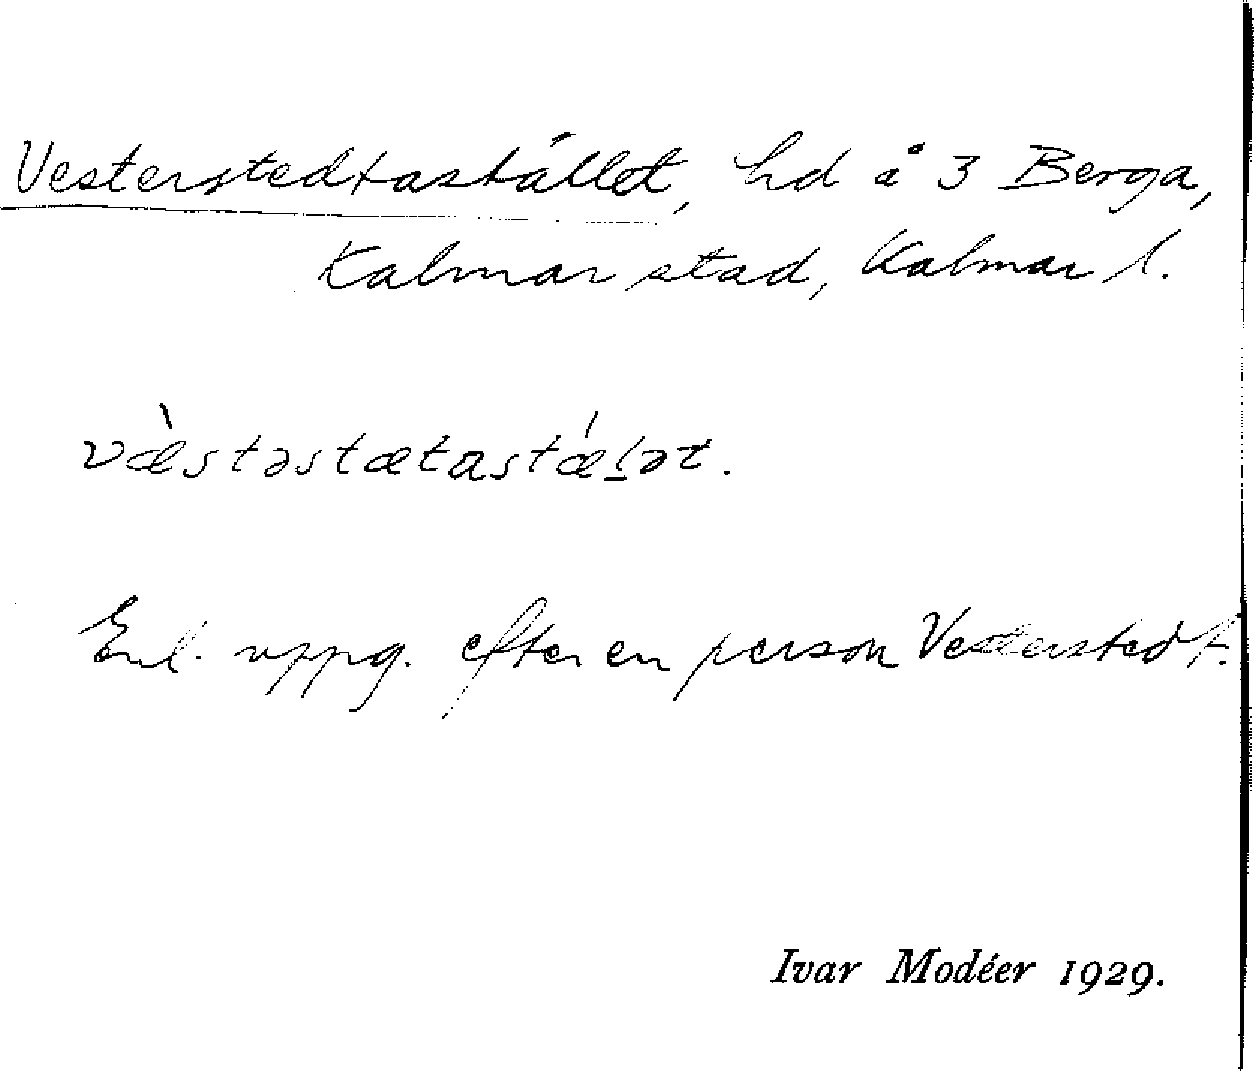 Vesterstedtastället, hd å 3 Berga,
Kalmar stad, Kalmar l.
væ̀stəstætastǽḷət.
Enl. uppg. efter en person Vesterstedt.
Ivar Modéer 1929.